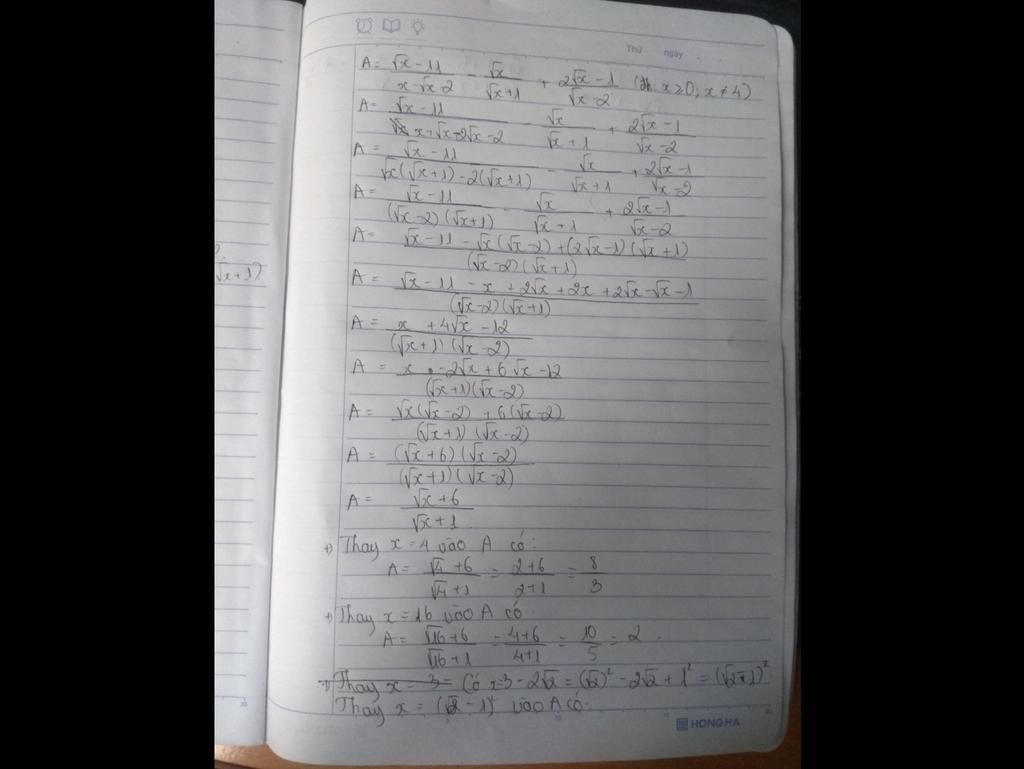 Thứ ngày
A = √x − 11 / x − √x − 2 − √x / √x + 1 + 2√x − 1 / √x − 2 (đk: x ≥ 0; x ≠ 4)
A = √x − 11 / x + √x − 2√x − 2 − √x / √x + 1 + 2√x − 1 / √x − 2
A = √x − 11 / √x(√x + 1) − 2(√x + 1) − √x / √x + 1 + 2√x − 1 / √x − 2
A = √x − 11 / (√x − 2)(√x + 1) − √x / √x + 1 + 2√x − 1 / √x − 2
A = √x − 11 − √x(√x − 2) + (2√x − 1)(√x + 1) / (√x − 2)(√x + 1)
√x + 1)
A = √x − 11 − x + 2√x + 2x + 2√x − √x − 1 / (√x − 2)(√x + 1)
A = x + 4√x − 12 / (√x + 1)(√x − 2)
A = x − 2√x + 6√x − 12 / (√x + 1)(√x − 2)
A = √x(√x − 2) + 6(√x − 2) / (√x + 1)(√x − 2)
A = (√x + 6)(√x − 2) / (√x + 1)(√x − 2)
A = √x + 6 / √x + 1
+) Thay x = 4 vào A có:
A = √4 + 6 / √4 + 1 = 2 + 6 / 2 + 1 = 8 / 3
+) Thay x = 16 vào A có
A = √16 + 6 / √16 + 1 = 4 + 6 / 4 + 1 = 10 / 5 = 2
+) Thay x = 3 = Có x = 3 − 2√2 = (√2)² − 2√2 + 1² = (√2 − 1)²
Thay x = (√2 − 1)² vào A có:
HONG HA